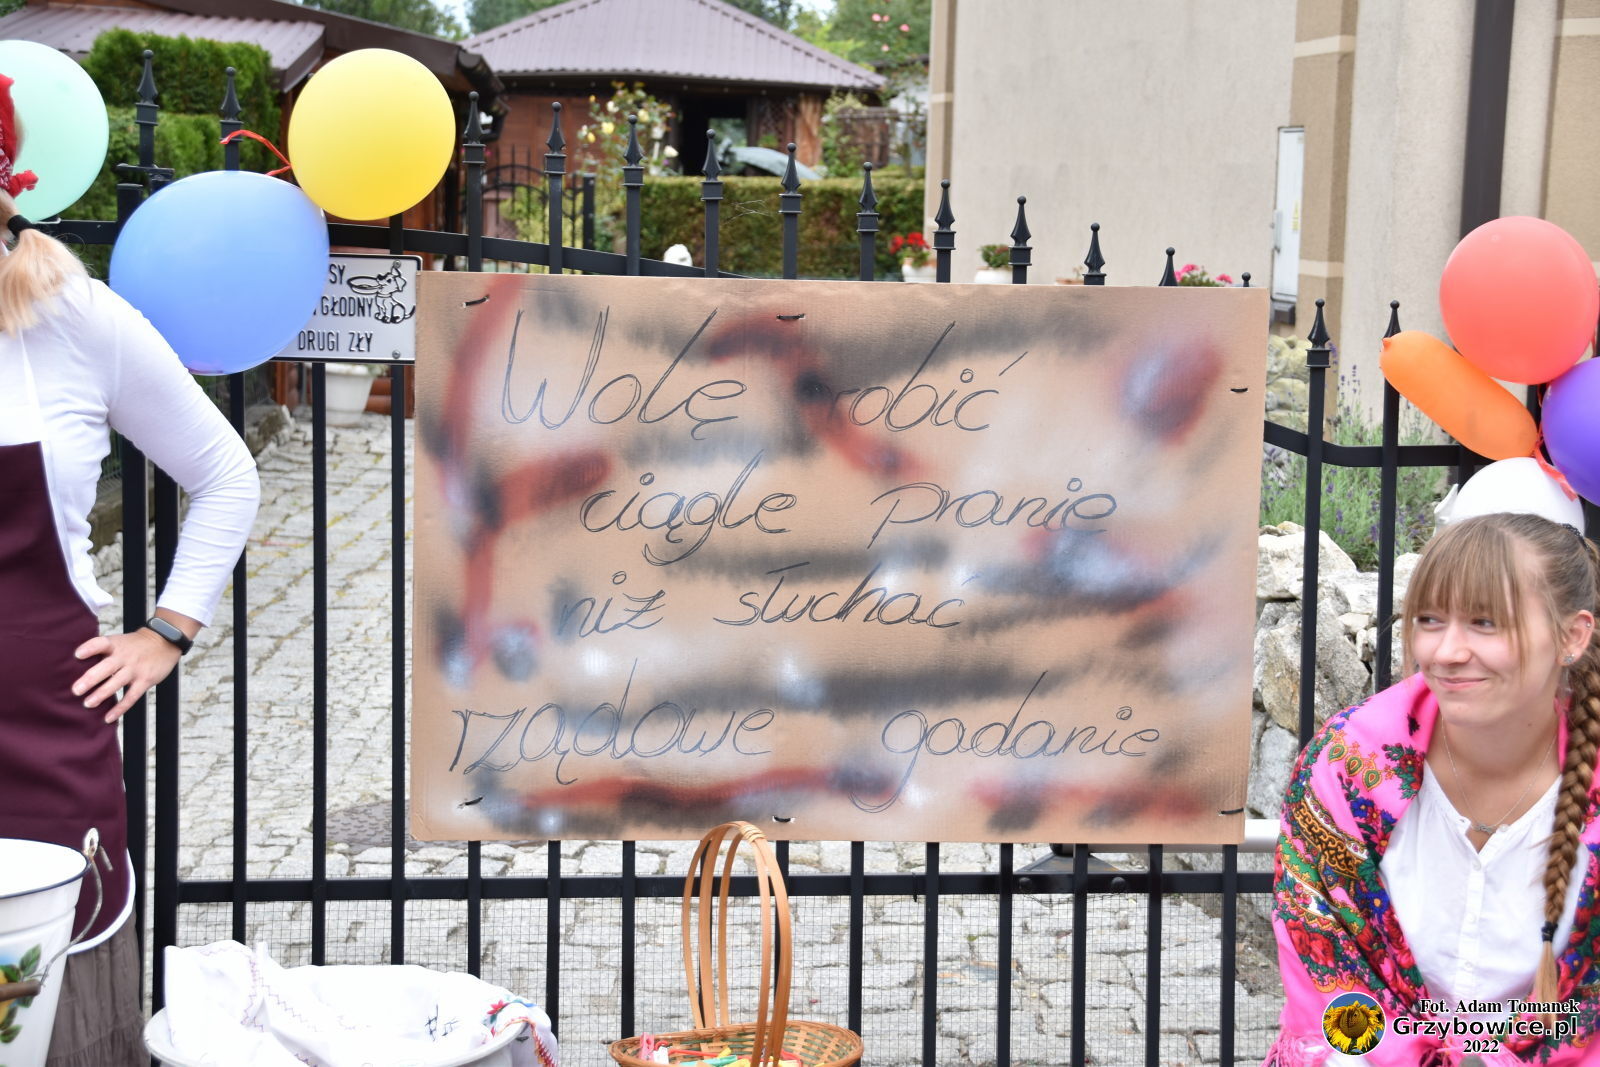 Wolę robić
ciągle pranie
niż słuchać
rządowe gadanie
SY
GŁODNY
DRUGI ZŁY
Fot. Adam Tomanek
Grzybowice.pl
2022